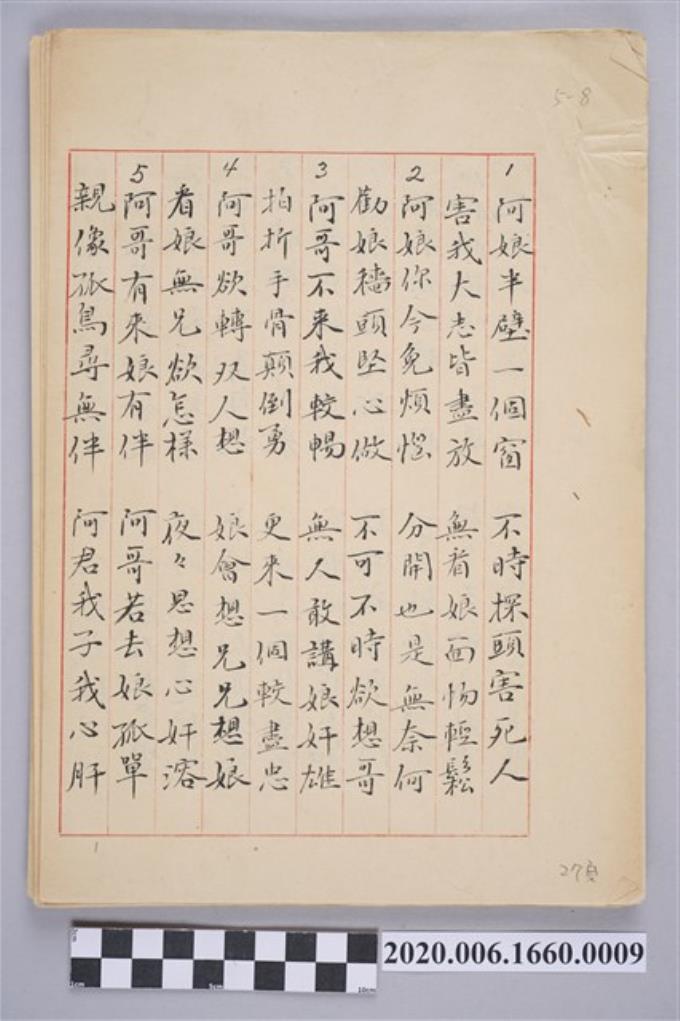 5-8
1 阿娘半壁一個窗 不時探頭害死人
害我大志皆盡放 無看娘面怏輕鬆
2 阿娘你今免煩惱 分開也是無奈何
勸娘穡頭堅心做 不可不時欲想哥
3 阿哥不来我較暢 無人敢講娘奸雄
拍折手骨顛倒勇 更來一個較盡忠
4 阿哥欲轉双人想 娘會想兄兄想娘
看娘無兄欲怎樣 夜々思想心奸溶
5 阿哥有來娘有伴 阿哥若去娘孤單
親像孤鳥尋無伴 阿君我子我心肝
1
27頁
2020.006.1660.0009
1cm
5cm
10cm